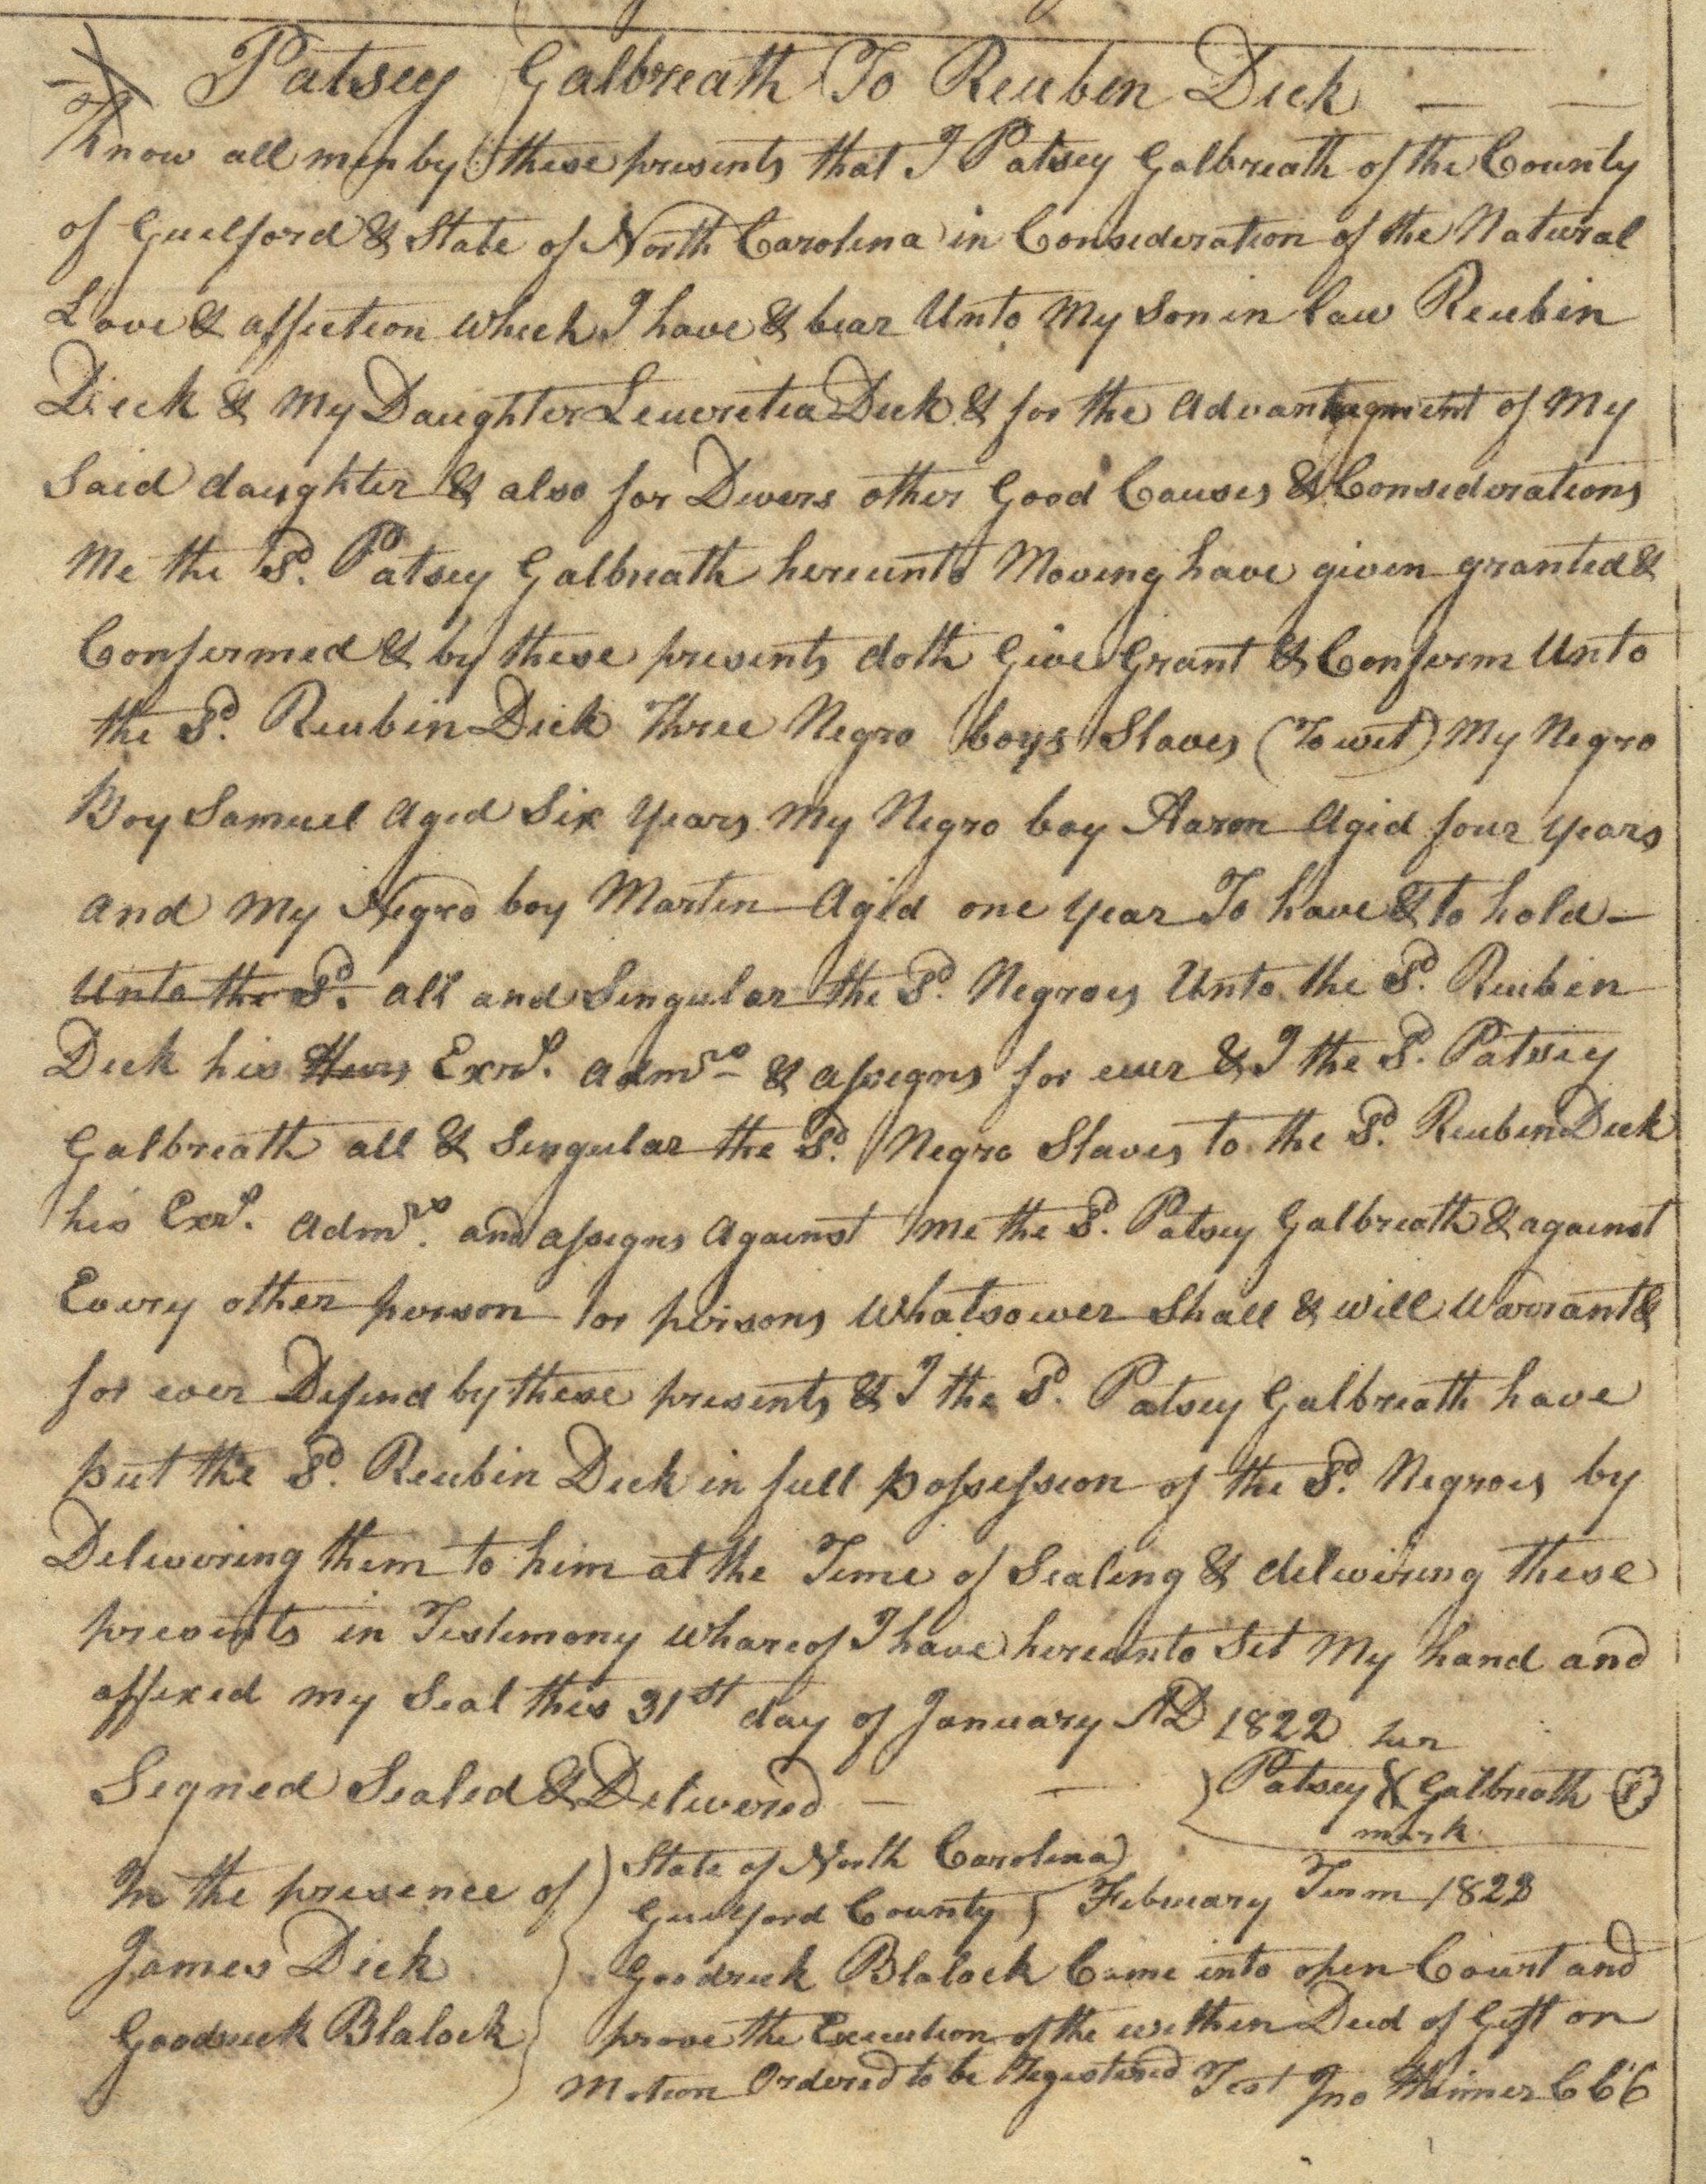 Patsey Galbreath To Reuben Dick — —
Know all men by these presents that I Patsey Galbreath of the County
of Guilford & State of North Carolina in Consideration of the Natural
Love & affection which I have & bear Unto My Son in law Reubin
Dick & My Daughter Leucretia Dick & for the advantagment of My
Said daughter & also for Divers other Good Causes & Considerations
Me the Sd. Patsey Galbreath hereunto Moving have given granted &
Confirmed & by these presents doth Give Grant & Confirm Unto
the Sd. Reubin Dick Three Negro boys Slaves (To wit) My Negro
Boy Samuel aged Six years My Negro boy Aaron Aged four years
and My Negro boy Martin Aged one year To have & to hold —
Unto the Sd. all and Singular the Sd. Negroes Unto the Sd. Reubin
Dick his Heirs Exrs. admrs & assigns for ever & I the Sd. Patsey
Galbreath all & Singular the Sd. Negro Slaves to the Sd. Reuben Dick
his Exrs. admrs. and assigns Against Me the Sd. Patsey Galbreath & against
Every other person or persons Whatsoever Shall & will Warrant &
for ever Defend by these presents & I the Sd. Patsey Galbreath have
put the Sd. Reubin Dick in full possession of the Sd. Negroes by
Delivering them to him at the Time of Sealing & delivering these
presents in Testimony whareof I have hereunto Set My hand and
affixed my Seal this 31st day of January AD 1822
her
Signed Sealed & Delivered — — Patsey X Galbreath
mark
In the presence of
James Dick
Goodrick Blalock
State of North Carolina
Guilford County } February Term 1822
Goodrick Blalock Came into open Court and
prove the Execution of the within Deed of Gift on
Motion Ordered to be Registered Test Jno Hanner CCC